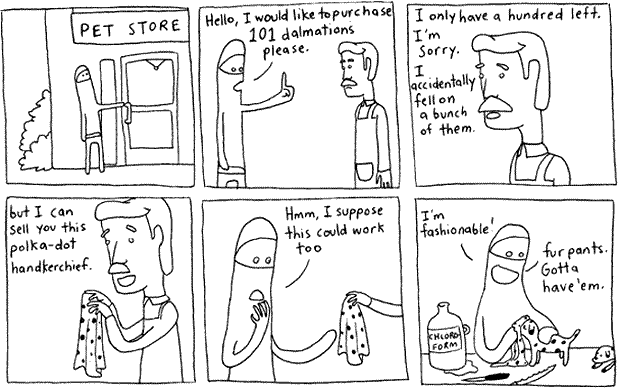 PET STORE
Hello, I would like to purchase
101 dalmations
please.
I only have a hundred left.
I'm
Sorry.
I
accidentally
fell on
a bunch
of them.
but I can
sell you this
polka-dot
handkerchief.
Hmm, I suppose
this could work
too
I'm
fashionable!
fur pants.
Gotta
have 'em.
CHLORO
FORM